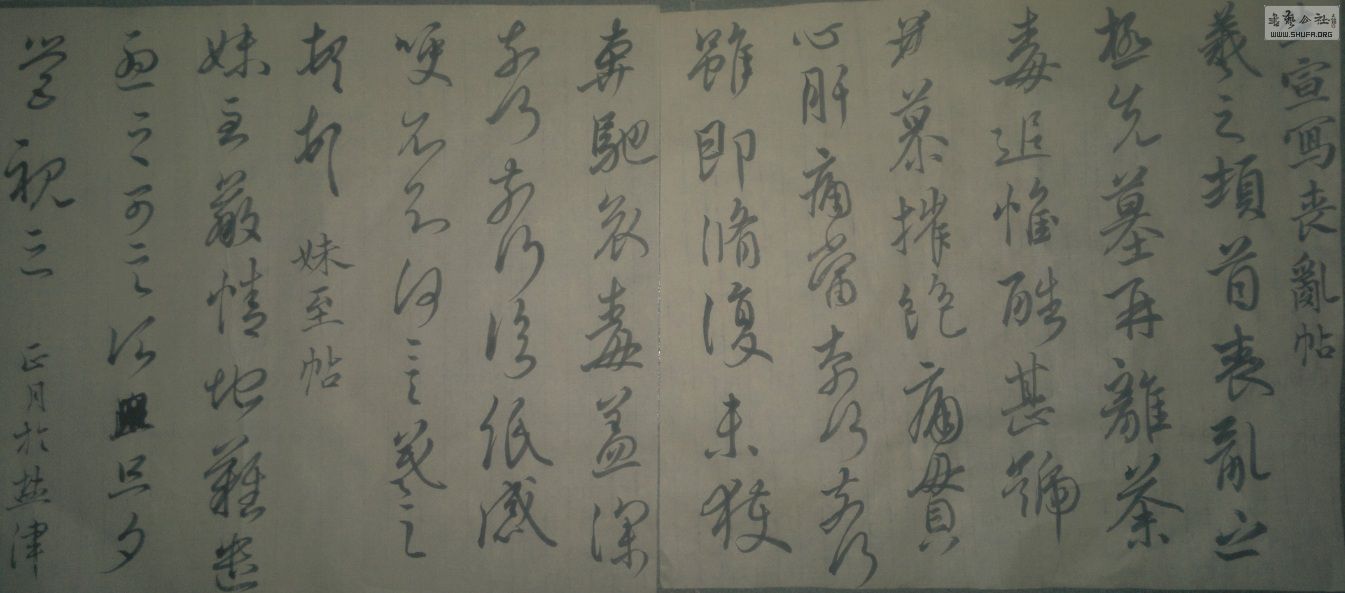 書藝公社
WWW.SHUFA.ORG
宣寫喪亂帖
羲之頓首喪亂之
極先墓再離荼
毒追惟酷甚號
慕摧絕痛貫
心肝痛當奈何奈何
雖即脩復未獲
奔馳哀毒益深
奈何奈何臨紙感
哽不知何言羲之
頓首 妹至帖
妹至情地難遣
憂之可言須旦夕
營視之 正月於盐津